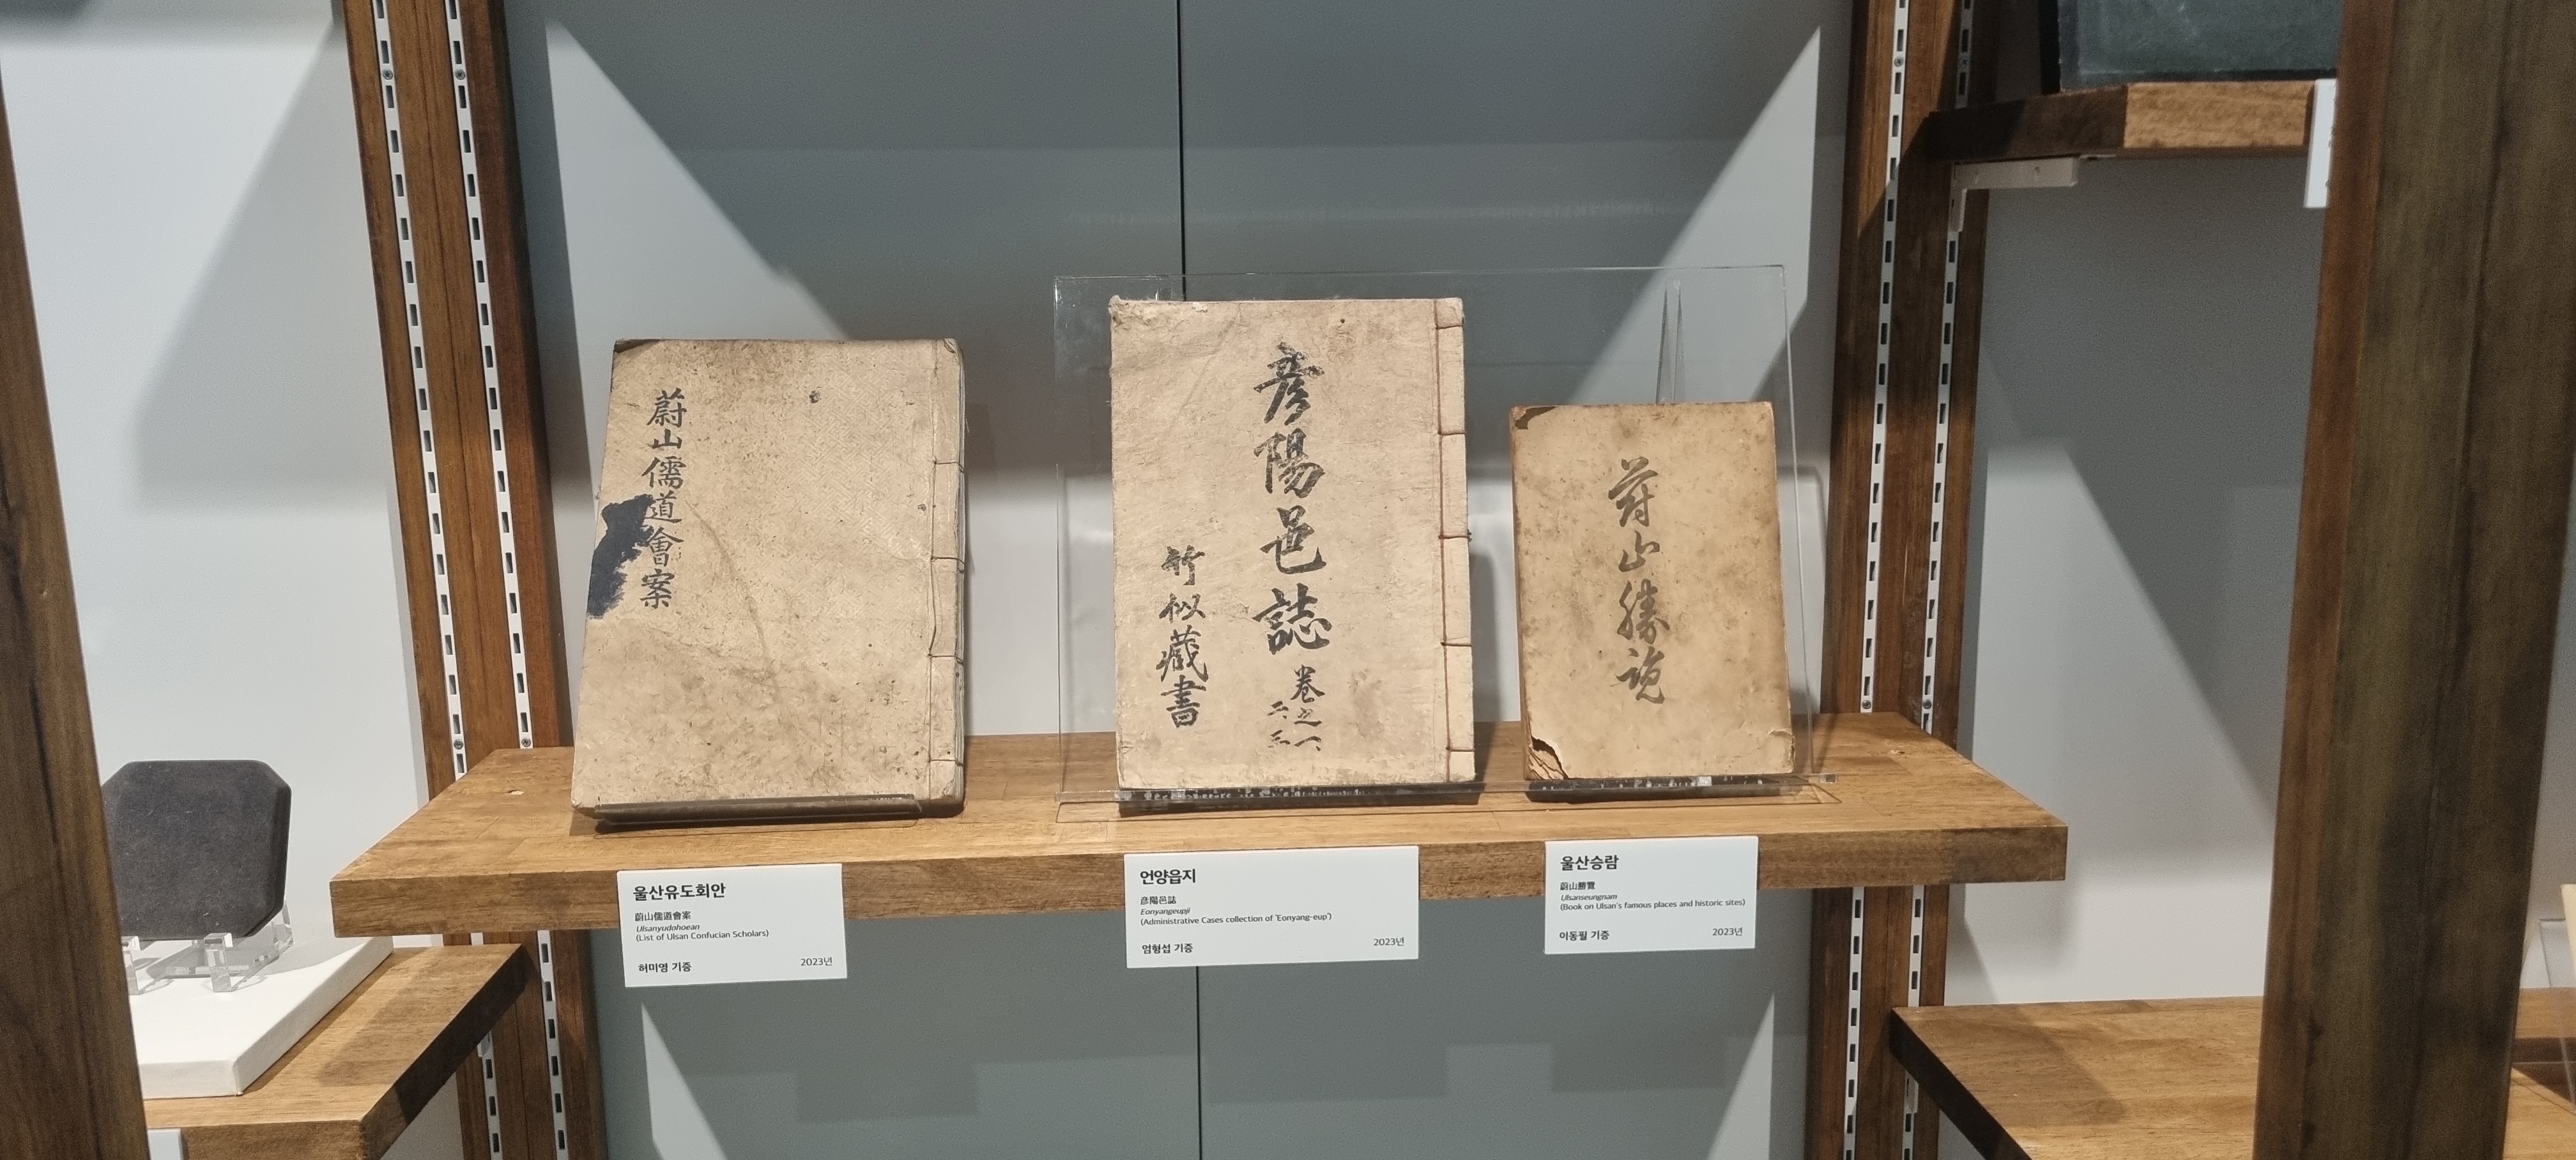 蔚山儒道會案
彦陽邑誌 卷之一
二
三
竹似藏書
蔚山勝覽
울산유도회안
蔚山儒道會案
Ulsanyudohoean
(List of Ulsan Confucian Scholars)
허미영 기증
2023년
언양읍지
彦陽邑誌
Eonyangeupji
(Administrative Cases collection of 'Eonyang-eup')
엄형섭 기증
2023년
울산승람
蔚山勝覽
Ulsanseungnam
(Book on Ulsan's famous places and historic sites)
이동필 기증
2023년